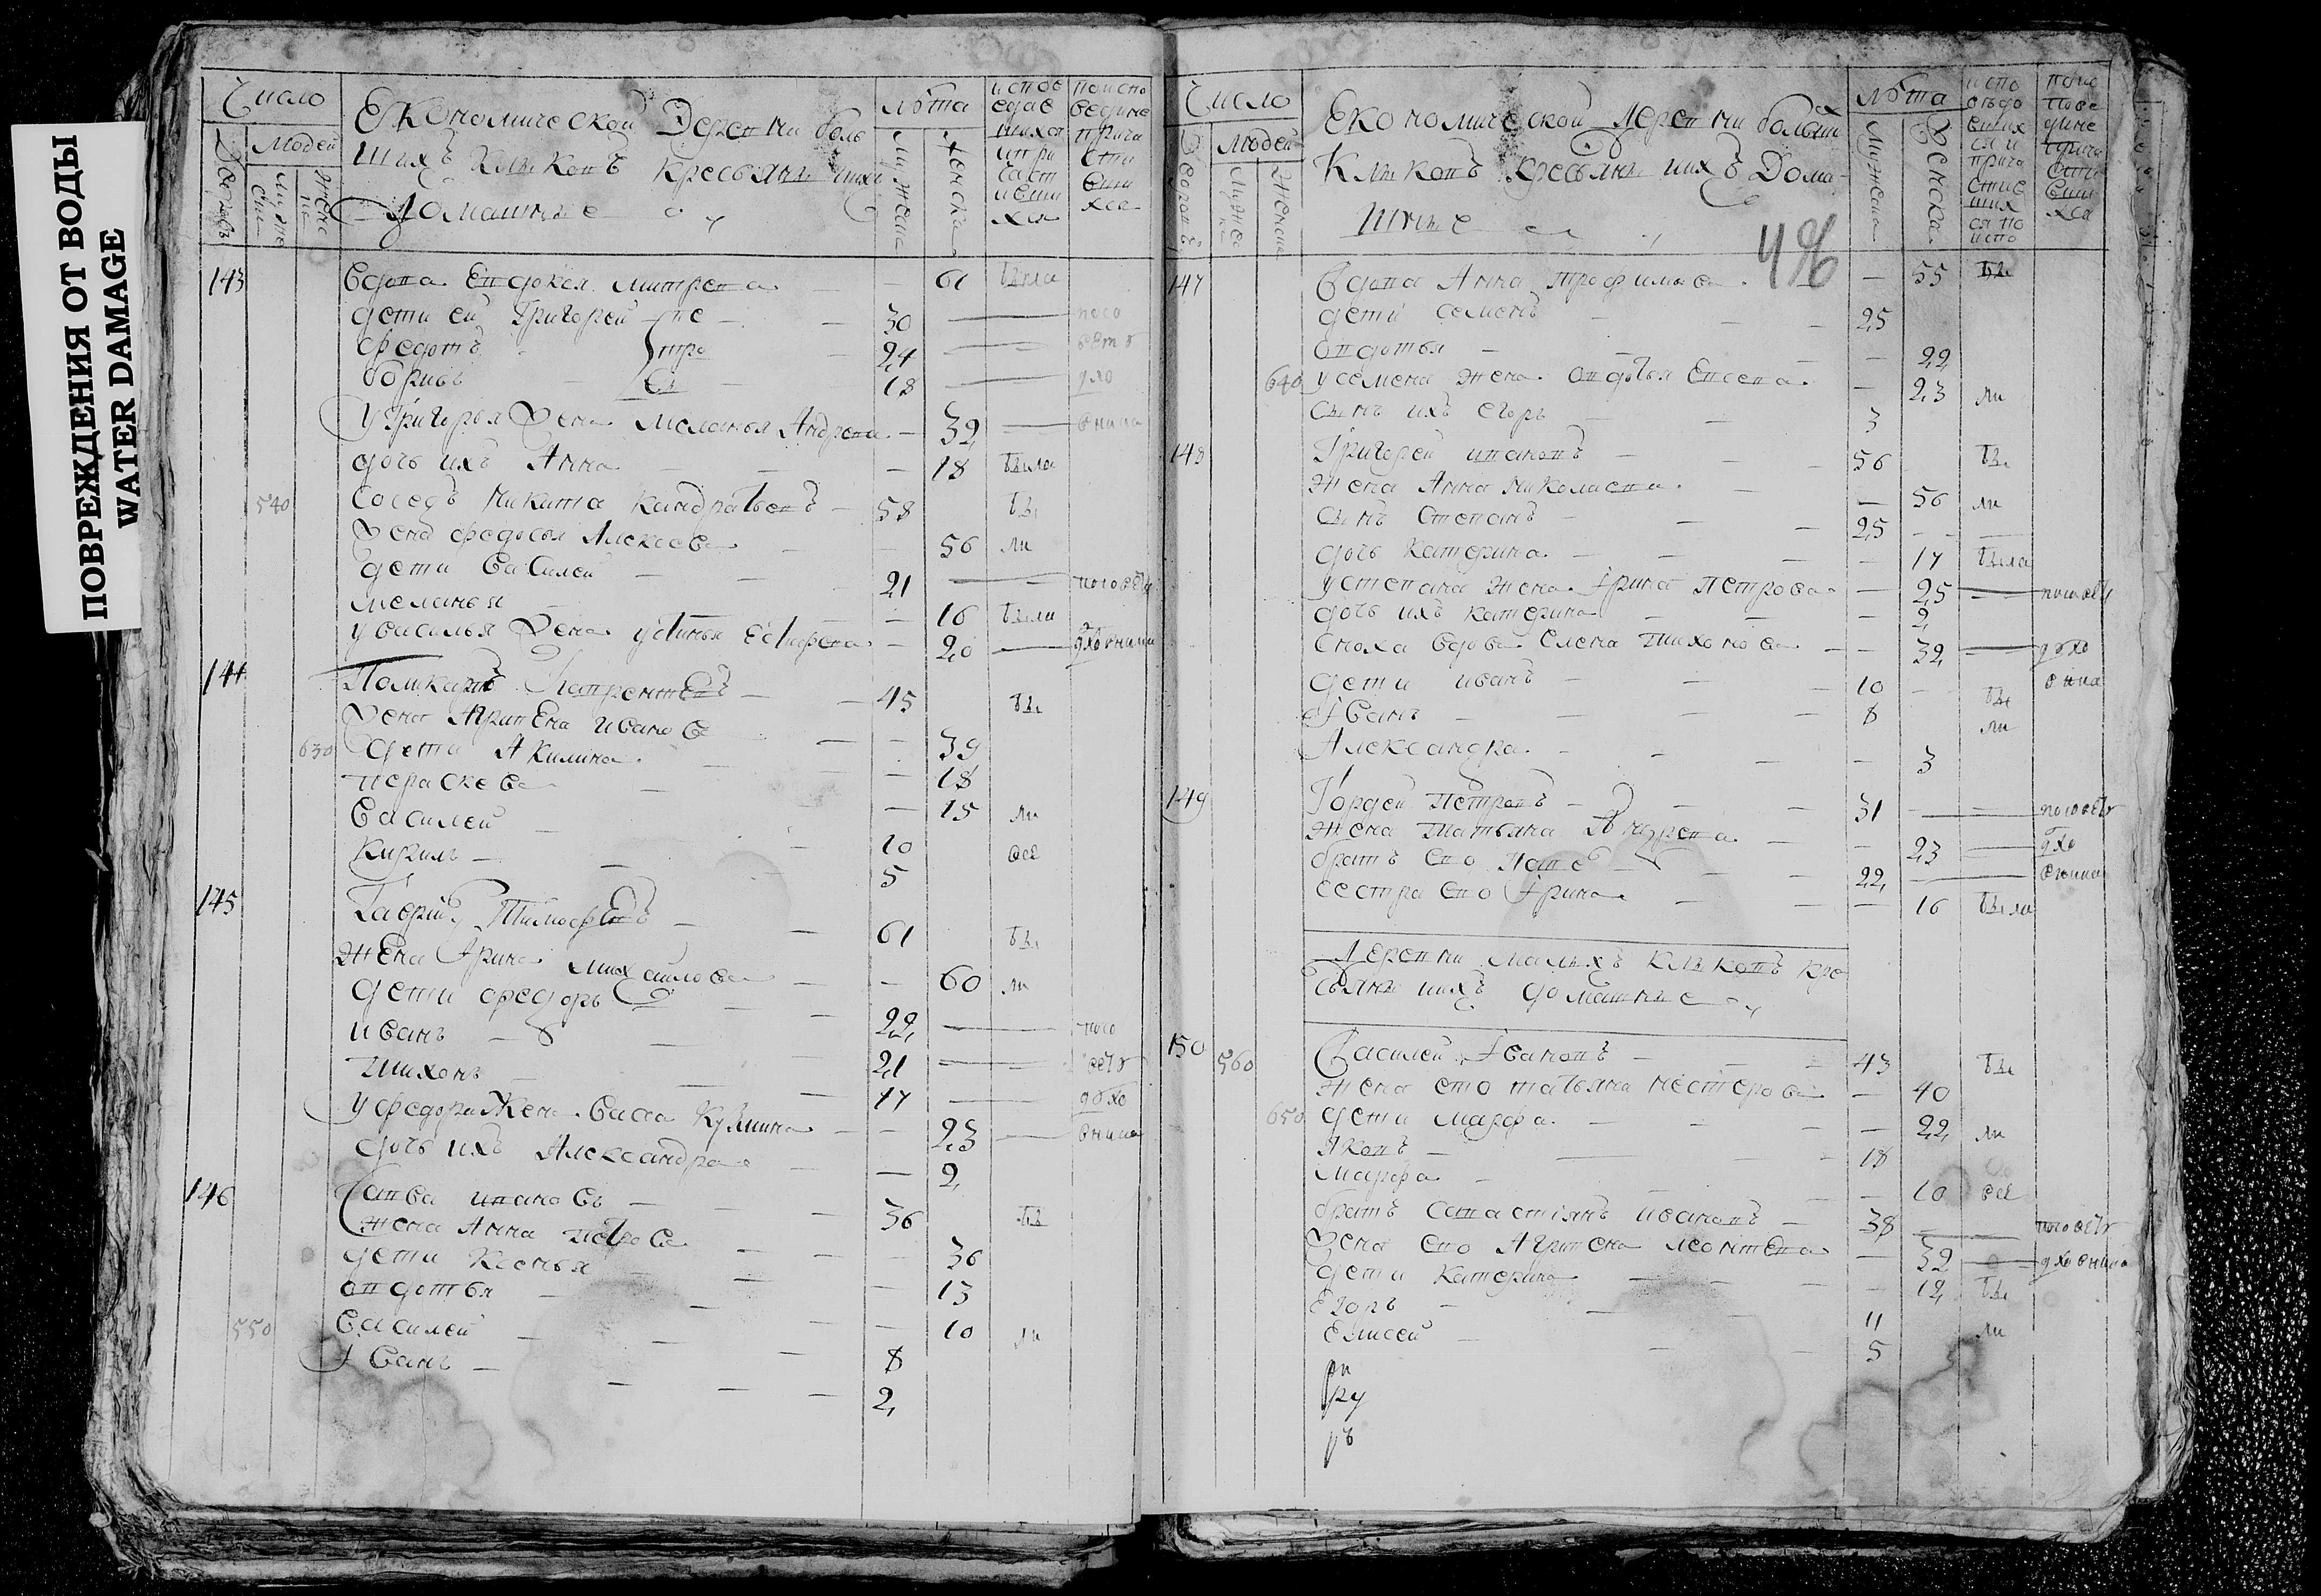 ПОВРЕЖДЕНИЯ ОТ ВОДЫ
WATER DAMAGE
Число
Людей
Екомомической Деревни боль
шихъ Клыковъ Крестьяне ихъ
Домашные
лѣта
143 Вдова Евдокея Митрева 61 была
дети ей Григорей 30 посо
Федотъ 24 вету
Борисъ 18 дхо
у Григорья жена Меланья Андрева 32 внико
дочь ихъ Анна 18 была
540 Соседъ Никита Кандратьевъ 58 бы
Жена Федосья Алексеева 56 ли
дети Василей 21 посовету
Меланья 16 были
у Василья жена Устинья Естифева 20 дховнико
144 Поликарпъ Лаврентьевъ 45 бы
Жена Агрипена Иванова 39
630 дети Акилина 18
Пераскева 15 ли
Василей 10 все
Кирилъ 5
145 Гаврилу Тимофевъ 61 бы
жена Ирина Михайлова 60 ли
дети Федоръ 22 посо
Иванъ 21 вету
Тихонъ 17 духо
у Федора жена Васа Кузмина 23 внико
дочь ихъ Александра 2
146 Савва Ивановъ 36 бы
жена Анна Петрова 36
дети Ксенья 13
Авдотья 10 ли
550 Василей 8
Иванъ 2
Число
Людей
Екомомической Деревни больших
Клыковъ Крестьяне ихъ Дома
шные
496
лѣта
147 Вдова Анна Трофимава 55 бы
дети Семенъ 25
Авдотья 22
640 у Семена жена Авдотья Евсева 23 ли
сынъ ихъ Егоръ 3
148 Григорей Ивановъ 56 бы
жена Анна Николаева 56 ли
сынъ Степанъ 25
дочь Катерина 17 была
у Степана жена Ирина Петрова 25 посовету
дочь ихъ Катерина 2
сноха вдова Елена Тихонова 32 духо
дети Иванъ 10 бы внико
Иванъ 8 ли
Александра 3
149 Гордей Петровъ 31 посовету
жена Татьяна Андрева 23 дхо
братъ ево 22 внико
сестра ево Ирина 16 были
Деревни Малыхъ Клыковъ кре
стьяне ихъ домашные
150 560 Василей Ивановъ 43 бы
жена ево Татьяна Нестерова 40
650 дети Марфа 22 ли
Яковъ 18
Марфа 10 все
братъ Савастиянъ Ивановъ 38 посовету
жена ево Агрипена Леонтева 32 дховнико
дети Катерина 12 бы
Егоръ 11 ли
Елисей 5
ри
ру
ръ